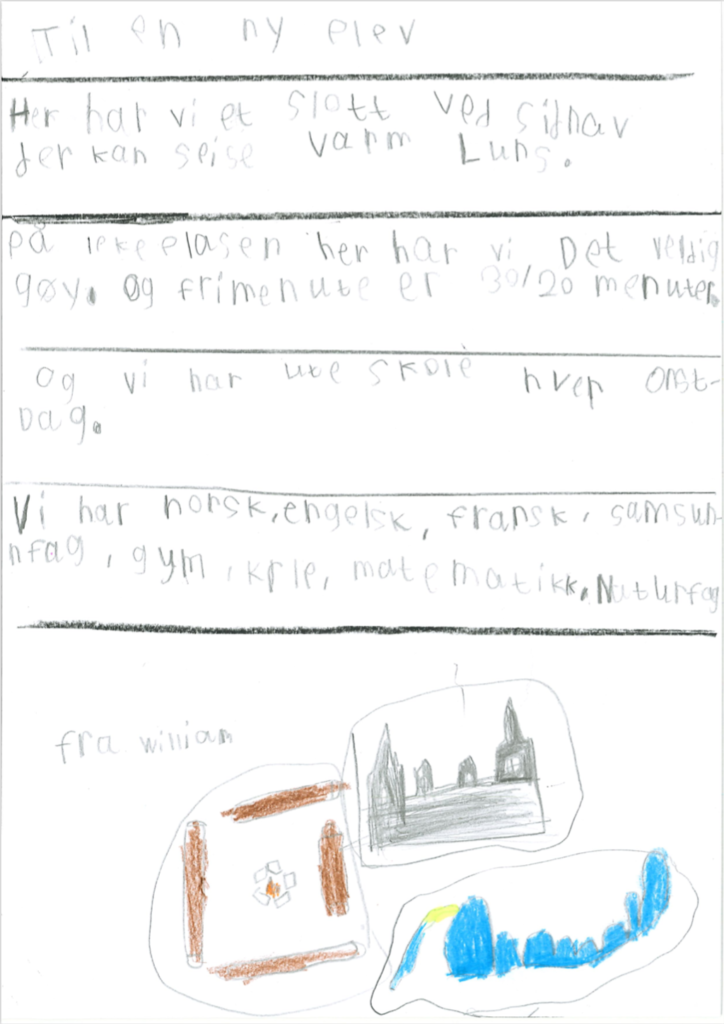 Til en ny elev
Her har vi et slott ved sidnav
der kan seise varm Luns.
på lekeplasen her har vi Det veldig
gøy. Og frimenute er 30/20 menuter.
Og vi har ute skole hver onst-
Dag.
Vi har norsk, engelsk, fransk, samsun-
nfag, gym, krle, matematikk, Naturfag
fra william